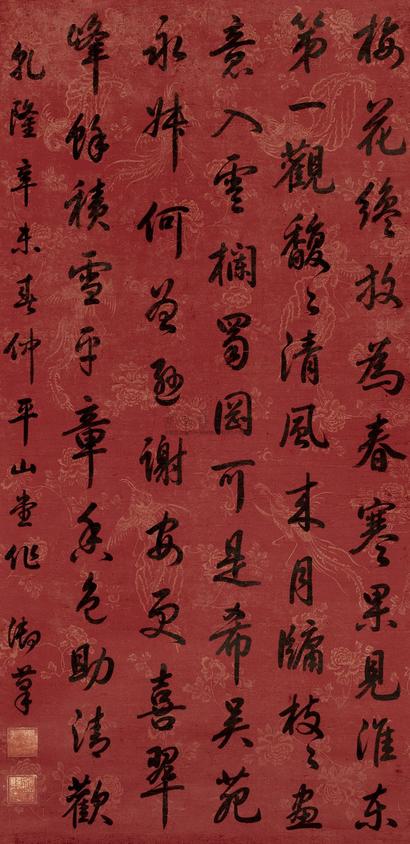 梅花纔放為春寒果見淮東
第一觀馥〻清風來月牖枝〻畫
意入雲欄蜀岡可是希吳苑
永叔何曾遜謝安更喜翠
峯餘積雪平章香色助清歡
乾隆辛未春仲平山堂作 御筆